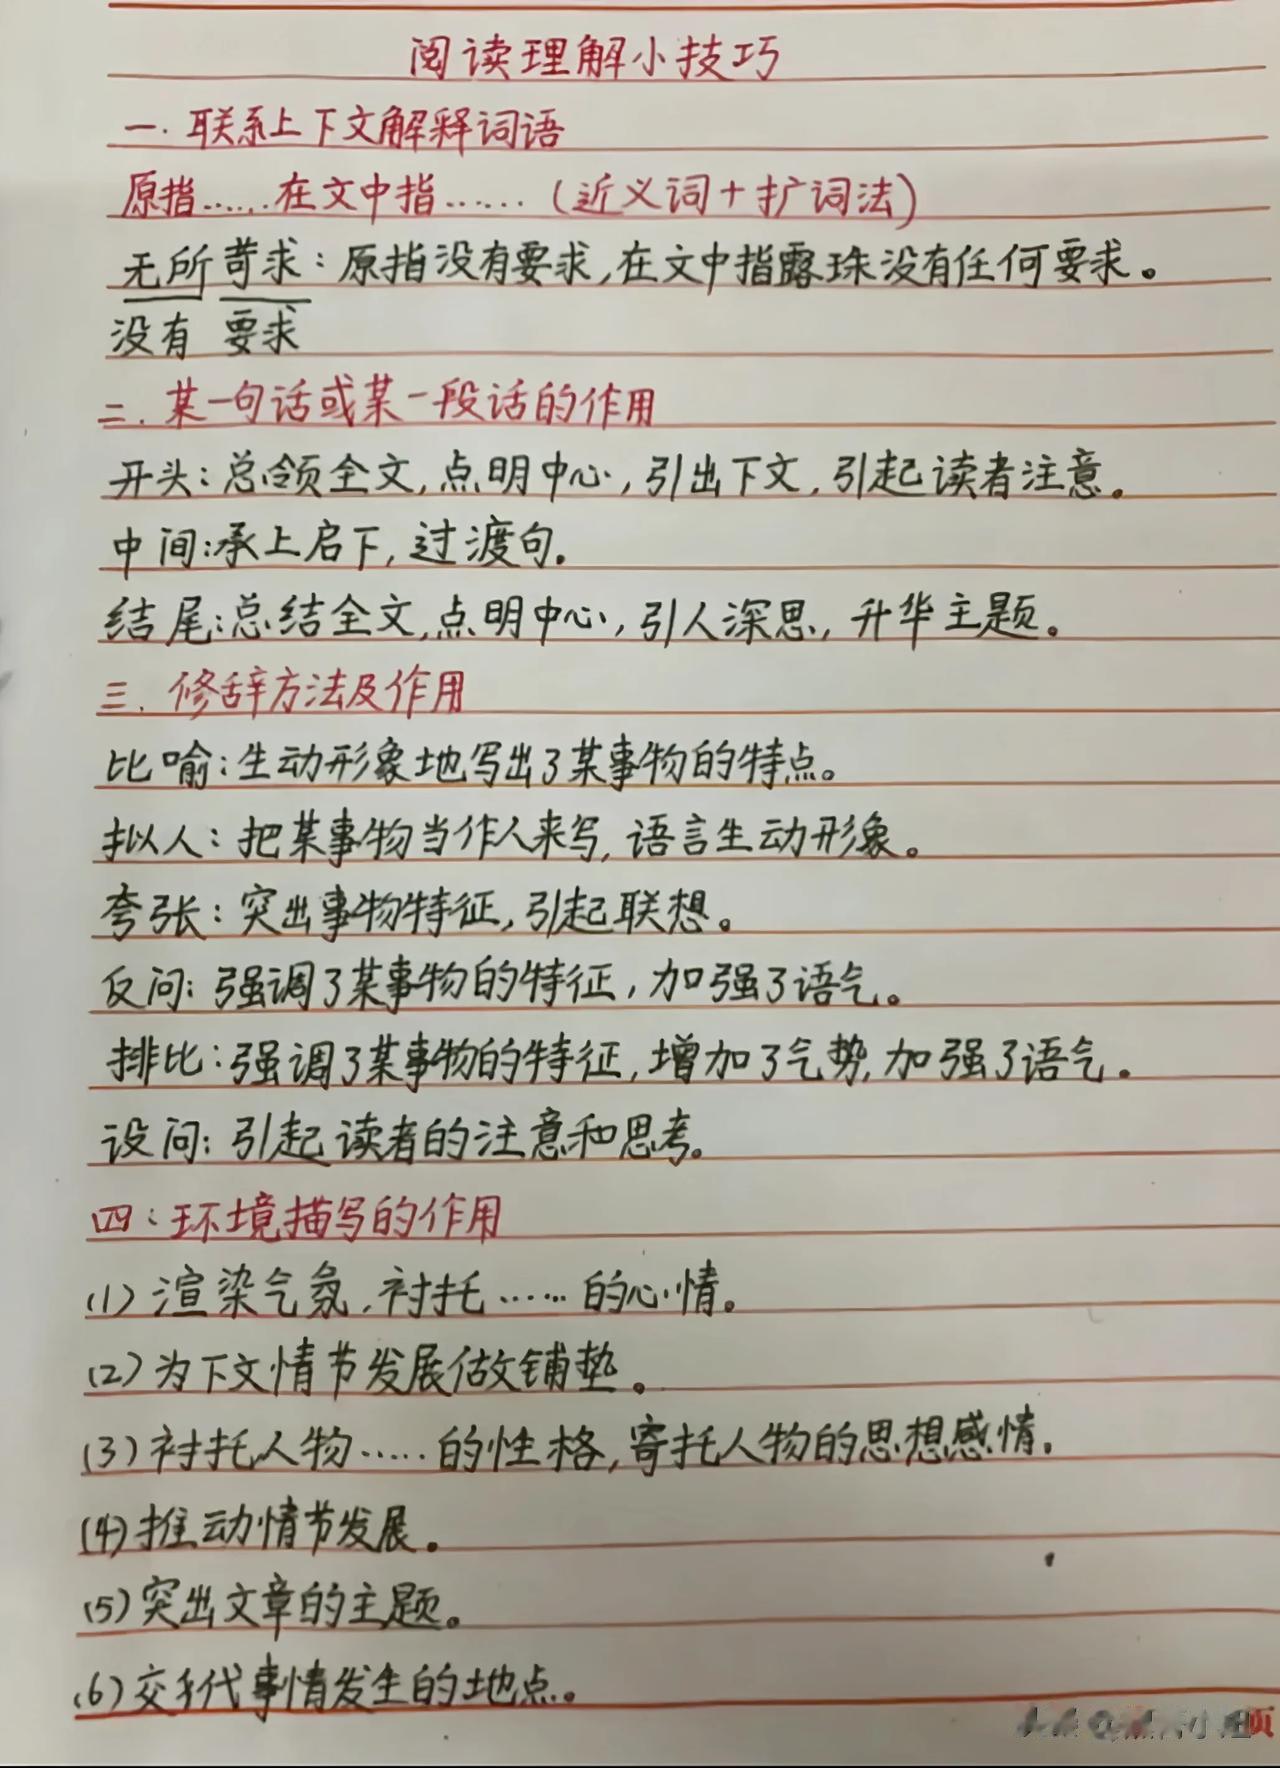 阅读理解小技巧
一.联系上下文解释词语
原指……在文中指……(近义词+扩词法)
无所苛求:原指没有要求,在文中指露珠没有任何要求。
没有 要求
二.某一句话或某一段话的作用
开头:总领全文,点明中心,引出下文,引起读者注意。
中间:承上启下,过渡句.
结尾:总结全文,点明中心,引人深思,升华主题。
三.修辞方法及作用
比喻:生动形象地写出了某事物的特点。
拟人:把某事物当作人来写,语言生动形象。
夸张:突出事物特征,引起联想。
反问:强调了某事物的特征,加强了语气。
排比:强调了某事物的特征,增加了气势,加强了语气。
设问:引起读者的注意和思考。
四:环境描写的作用
(1)渲染气氛,衬托……的心情。
(2)为下文情节发展做铺垫。
(3)衬托人物……的性格,寄托人物的思想感情.
(4)推动情节发展。
(5)突出文章的主题。
(6)交代事情发生的地点。
页